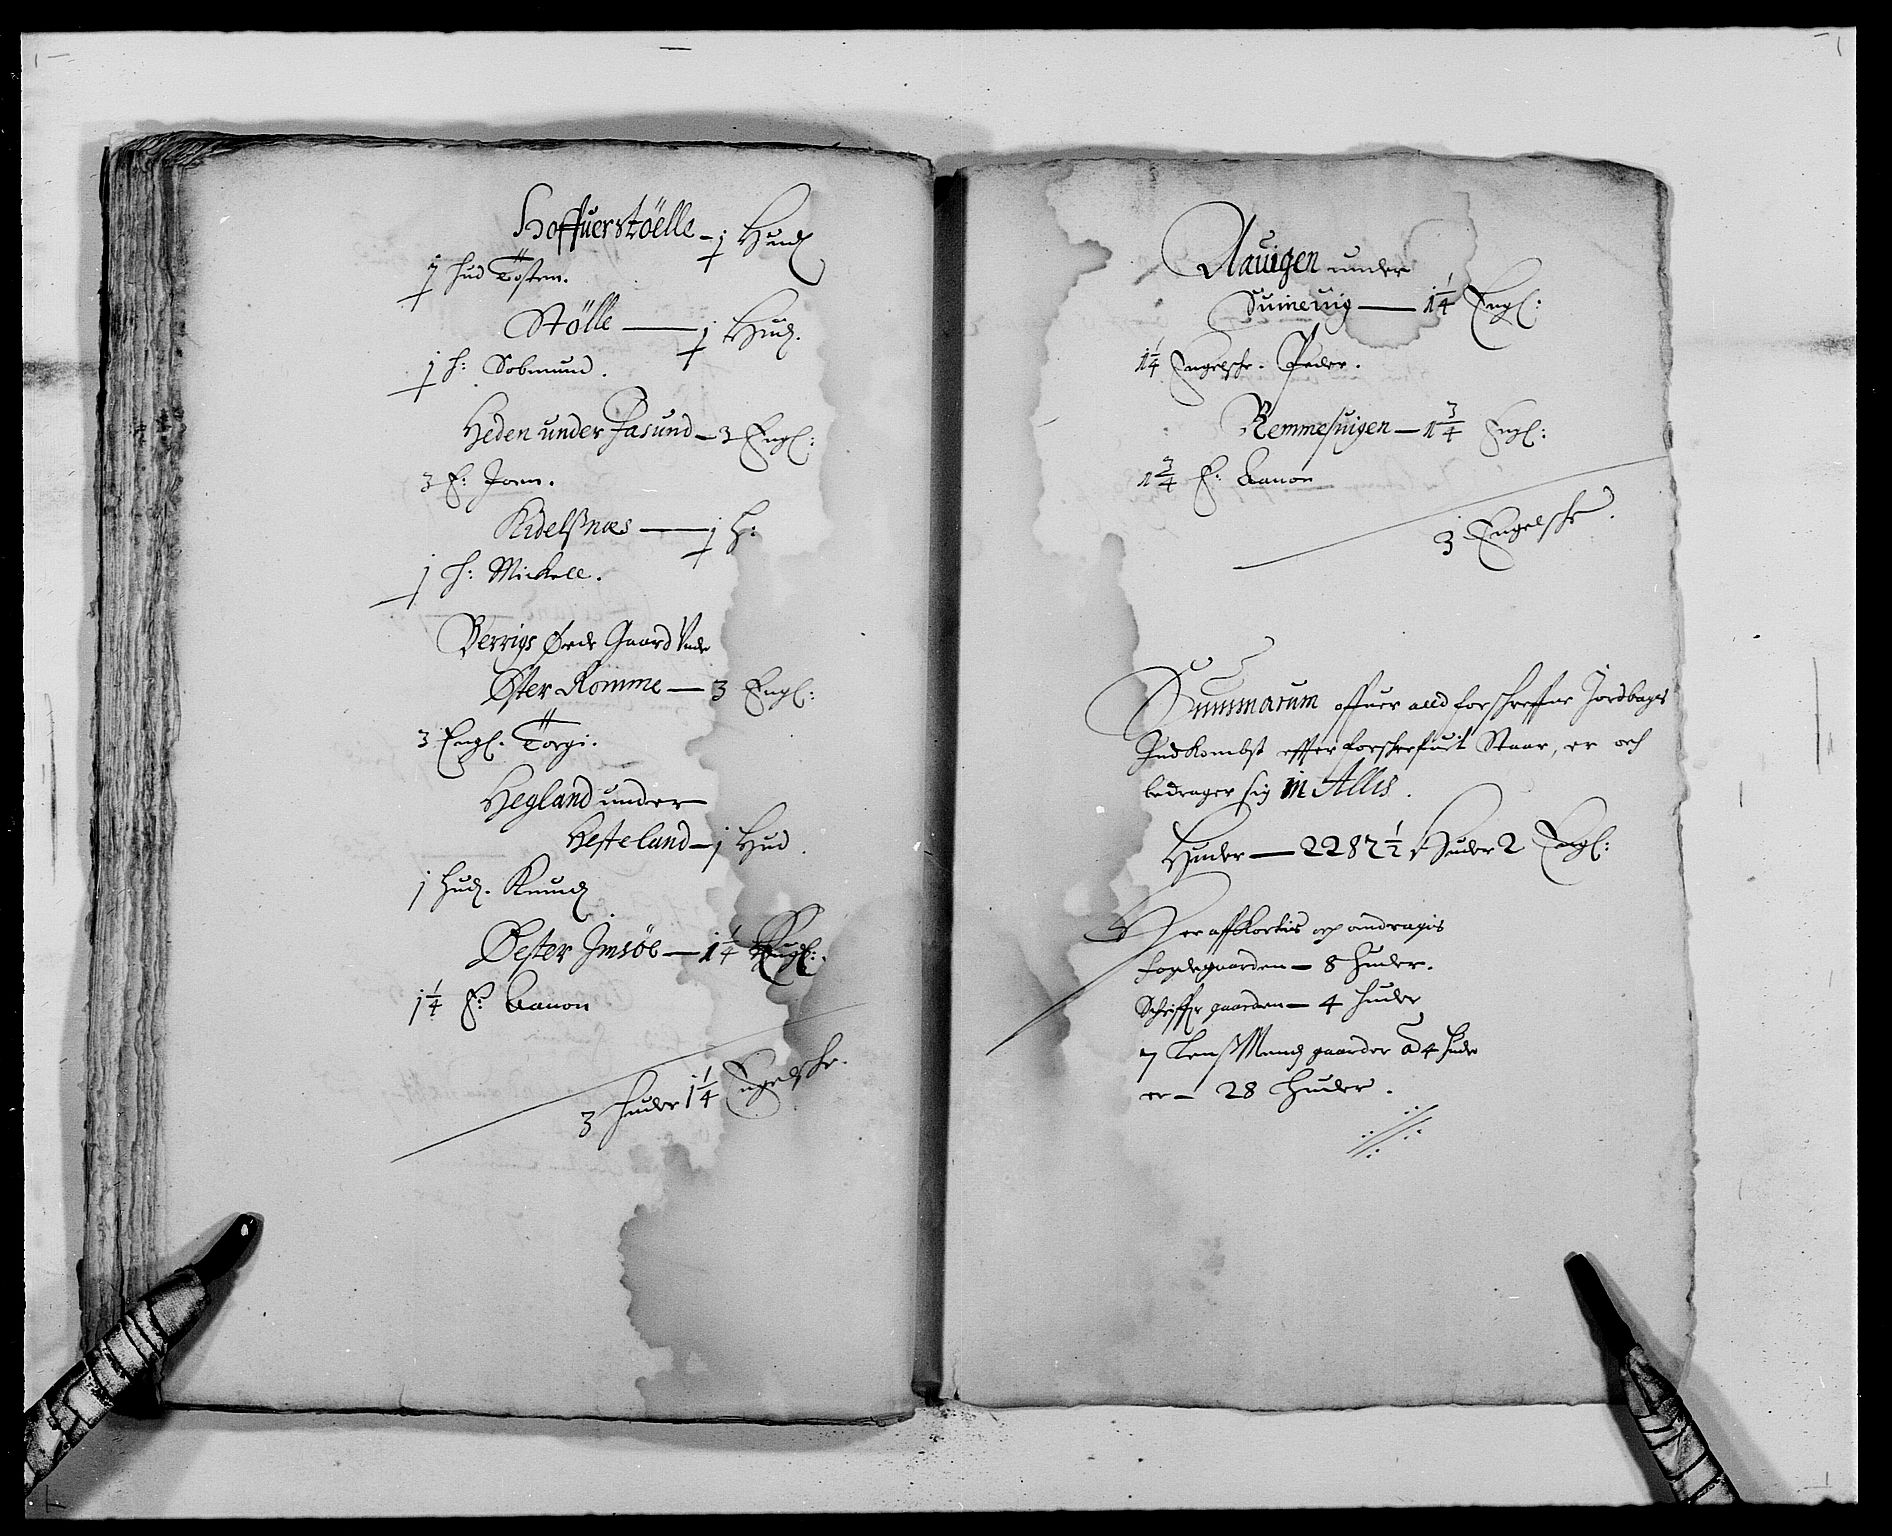 Hoffuerstöelle – 1 Hud
1 hud Tosten.
Stölle — 1 Hud.
1 h: Sobmund.
Heden under Fasund – 3 Engl:
3 E: Joen.
Kidelsnæs — 1 h:
1 h: Mickell.
Berrigs Øede Gaard Unde
Øster Romme — 3 Engl:
3 Engl. Torgi.
Hegland under
Hesteland – 1 Hud.
1 Hud. Knud
Vester Imsöe — 1 1/4 Engl:.
1 1/4 E: Aanon
3 huder 1 1/4 Engelske.
Aauigen under
Suineuig — 1 1/4 Engl:
1 1/4 Engelske. Peder.
Remmesuigen — 1 3/4 Engl:
1 3/4 E: Aanon
3 Engelske.
Summarum offuer alld forschreffne Jordbogs
Indkombst effter forschrefuit Staar, er och
bedrager sig in Allis.
Huder — 2287 1/2 Huder 2 Engl:
Her affkortis och andragis
Fogdegaarden – 8 huder.
Schriffuer gaarden – 4 huder
7 Lensmend gaarder a 4 hude
er – 28 huder.